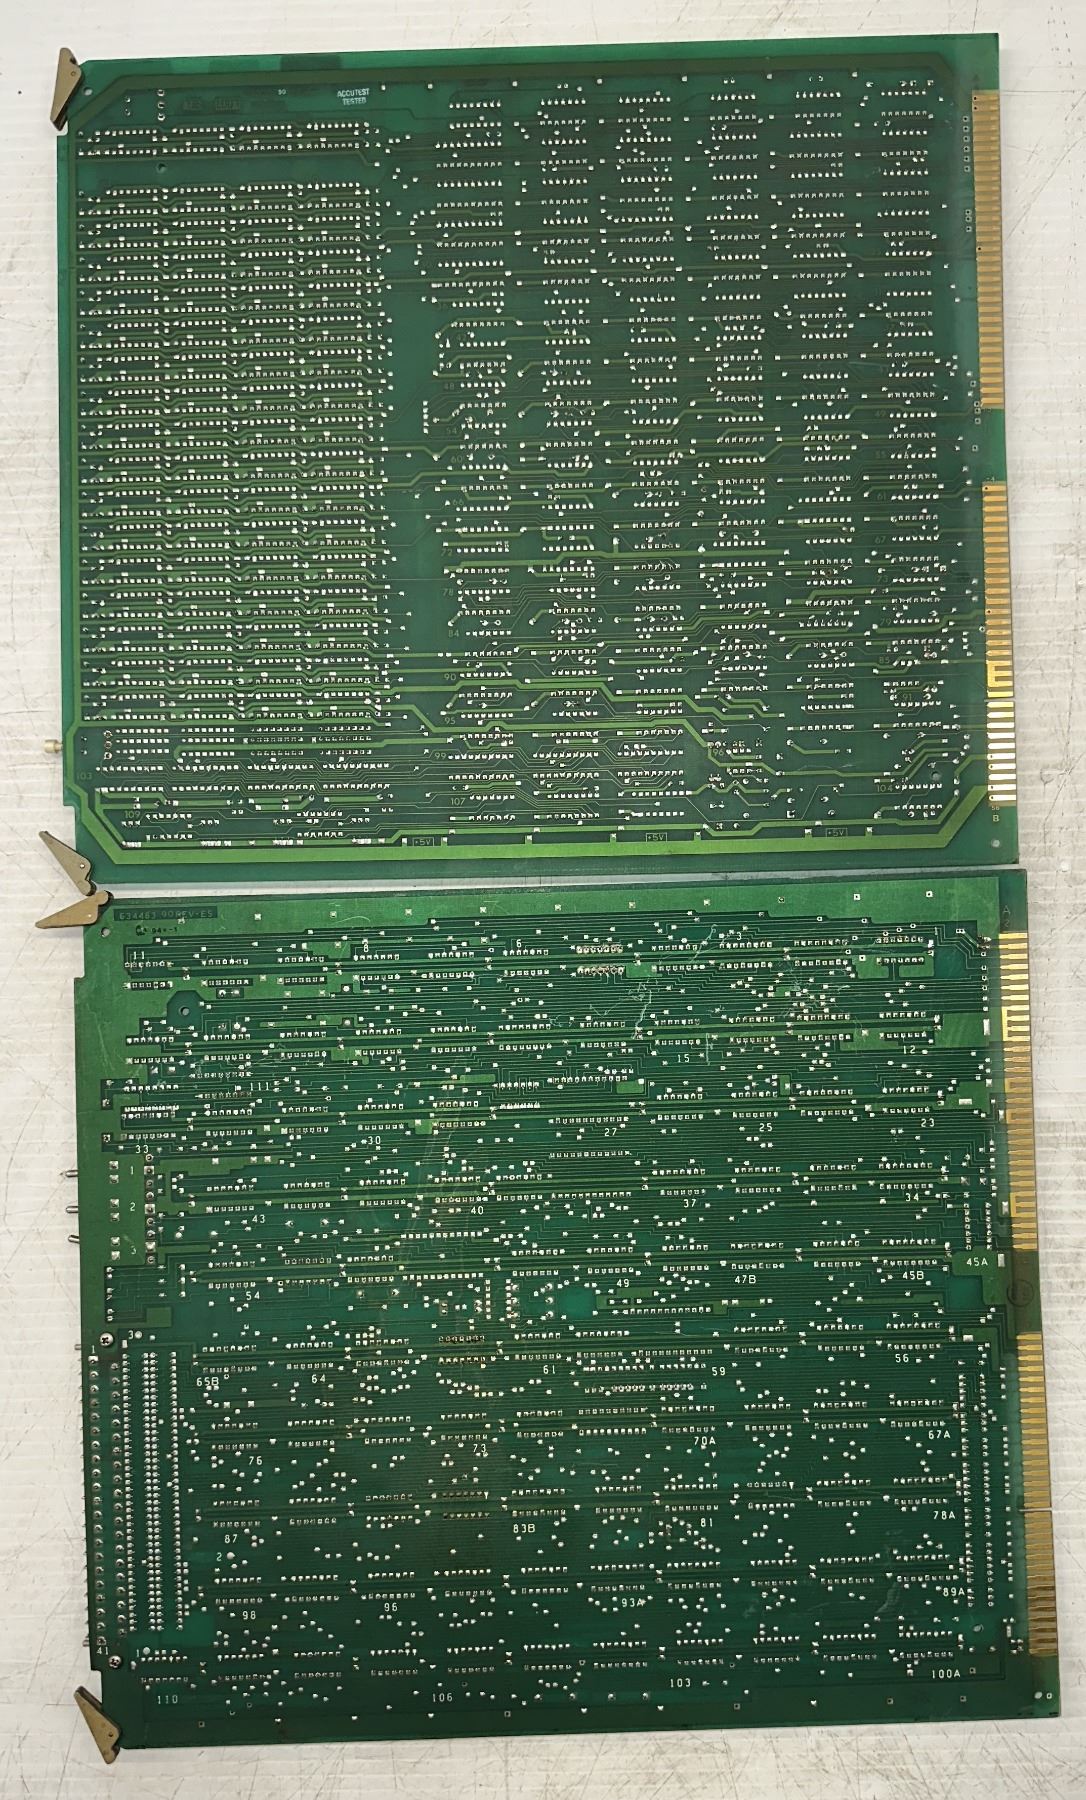 ACCUTEST
TESTED
48
49
54
55
60
61
66
67
72
78
79
84
85
90
91
95
96
99
103
104
107
109
+5V
+5V
+5V
B
11
8
6
3
15
12
111
30
27
25
23
33
1
2
3
43
40
37
34
54
49
47B
45B
45A
1
3
65B
64
61
59
56
76
73
70A
67A
87
83B
81
78A
2
98
96
93A
89A
41
1
110
106
103
100A